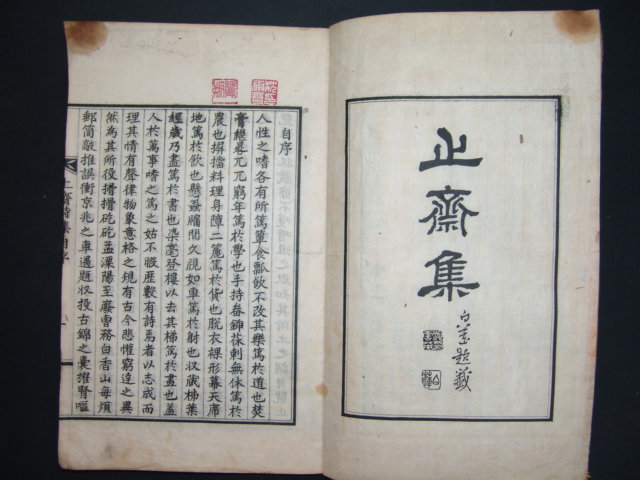 止齋集
自序
人性之嗜各有所篤簞食瓢飲不改其樂篤於道也焚
膏繼晷兀兀窮年篤於學也手持畚鍤茠刺無休篤於
農也摒擋料理身障二簏篤於貨也脫衣裸形幕天席
地篤於飲也懸蝨牖間久視如車篤於射也收歲梯葉
經歲乃盡篤於書也染毫登樓以去其梯篤於畫也蓋
人於萬事嗜之篤之姑不暇歷數有詩焉者以志成而
理其情有聲律物象意格之規有古今悲懽窮達之異
然為其所役搰搰矻矻孟溧陽至廢曹務白香山每煩
郵筒敲推誤衝京兆之車遇題收投古錦之囊擢腎嘔
止齋詩集自序